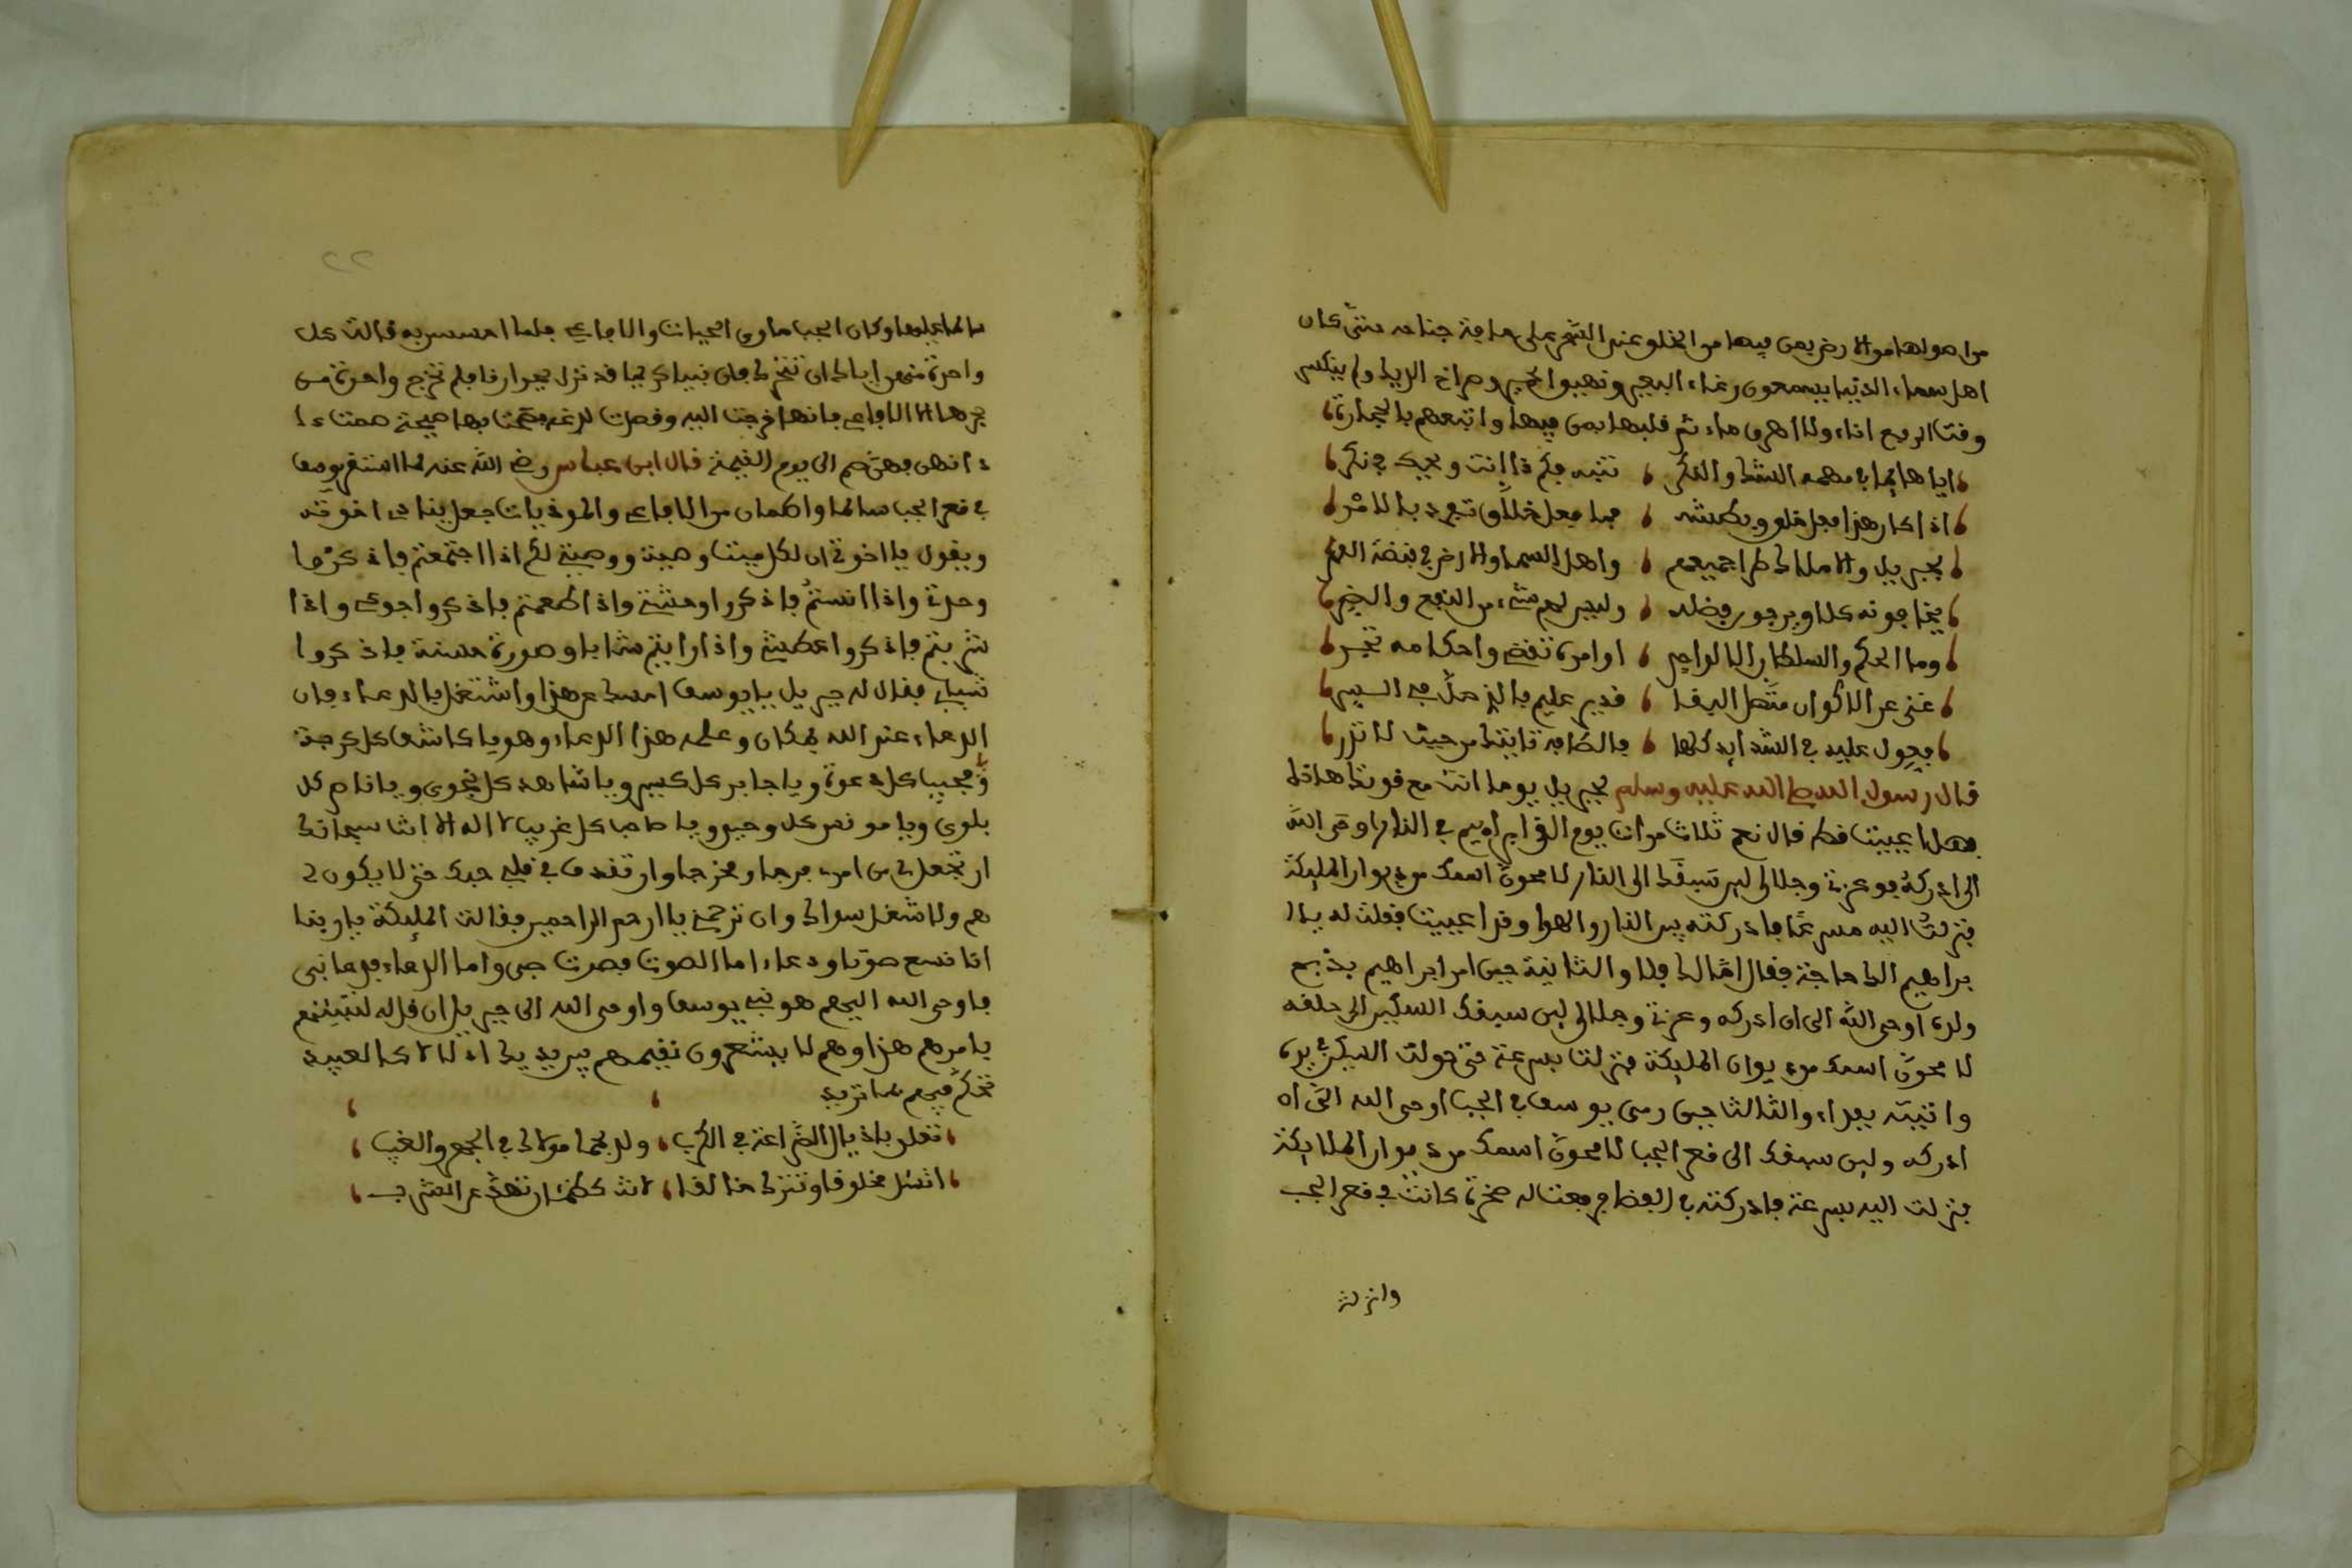 من اهوالها مولا رض بمن فيها من الخلو عند الشجر على حافة جناحه حتى كان
اهل سماء الدنيا يسمعون رغاء البعير ونهيوا لحمير وصراخ الديك ولم ينكس
وفت الربع اناء ولا اهرق ماء ثم قلبها بمن فيها واتبعهم بالحجارة
ايا هايما في مهمه الشك والفكر تنبه فكم ذا انت ويحك في نكر
اذا كان هذا فعل خلو وبطشه فما فعل خلاق تفرد بالامر
بجبريل والاملاك طرا جميعهم واهل السما والارض في قبضة القهر
يخافونه كلا ويرجون فضله وليس لهم شيء من النفع والضر
وما الحكم والسلطان الا لواحد اوامره تقضي واحكامه تجر
غني عن الاكوان متصل البقا قدير عليم بالذي حل في السر
فعول عليه في الشدايد كلها فالطافه تاتيك من حيث لا تدر
قال رسول الله صلى الله عليه وسلم لجبريل يوما انت مع قوتك هاته
فهل اعييت قط قال نعم ثلاث مرات يوم القي ابراهيم في النار اوحى الله
الي ادركه فوعزتي وجلالي لين سبقك الى النار لامحون اسمك من ديوان المليكة
فنزلت اليه مسرعا فادركته بين النار والهوا وقد اعييت فقلت له يا ا
براهيم الك حاجة فقال اما اليك فلا والثانية حين امر ابراهيم بذبح
ولده اوحى الله الي ان ادركه وعزتي وجلالي لين سبقك السكين الى حلقه
لامحون اسمك من ديوان المليكة فنزلت بسرعة حتى حولت السكين في يده
واتيته بفداء والثالثا حين رمي يوسف في الجب اوحى الله الي ان
ادركه ولين سبقك الى قعر الجب لامحون اسمك من ديوان الملايكة
فنزلت اليه بسرعة فادركته في الفضا فرفعت له صخرة كانت في قعر الجب
وانزلته
سالما عليها وكان الجب ماوى الحيات والافاعي فلما احسسن به قالت كل
واحدة منهن اياك ان تتحرك فان نبيا كريما قد نزل بجوارنا فلم تخرج واحدة من
جحرها الا الافاعي فانها خرجت اليه وقصدت لدغه بها صيحة صمت ا
ذانهن فهن صم الى يوم القيمة قال ابن عباس رضي الله عنه لما استقر يوسف
في قعر الجب سالما واطمان من الافاعي والموذيات جعل ينادي اخوته
ويقول يا اخوتي ان لكل ميت وصية ووصيتي لكم اذا اجتمعتم فاذكروا
وحدتي واذا انستم فاذكروا وحشتي واذا طعمتم فاذكروا جوعي واذا
شربتم فاذكروا عطشي واذا رايتم شابا وصورة حسنة فاذكروا
شبابي فقال له جبريل يا يوسف امسك عن هذا واشتغل بالدعاء فان
الدعاء عند الله بمكان وعلمه هذا الدعاء وهو يا كاشف كل كربة
ويا مجيبا كل دعوة ويا جابر كل كسير ويا شاهد كل نجوى ويا كل
بلوى ويا مونس كل وحيد ويا صاحب كل غريب لا اله الا انت سبحانك
ان تجعل لي من امري فرجا ومخرجا وان تقذف في قلبي حبك حتى لا يكون لي
هم ولا شغل سواك وان ترحمني يا ارحم الراحمين فقالت المليكة يا ربنا
انا نسمع صوتا ودعاء اما الصوت فصوت صبي واما الدعاء فدعا نبي
فاوحى الله اليهم هو نبيي يوسف واوحى الله الى جبريل ان قل له لتنبئنهم
بامرهم هذا وهم لا يشعرون نقيمهم بين يديك اذلالا كالعبيد
تحكم فيهم بما تريد
تعلق باذيال الضراعة في الكرب ولذ بحما مولاك في الجمع والغيب
اتسئل مخلوقا وتترك خالقا لانت كظمئان تنحى عن الشرب